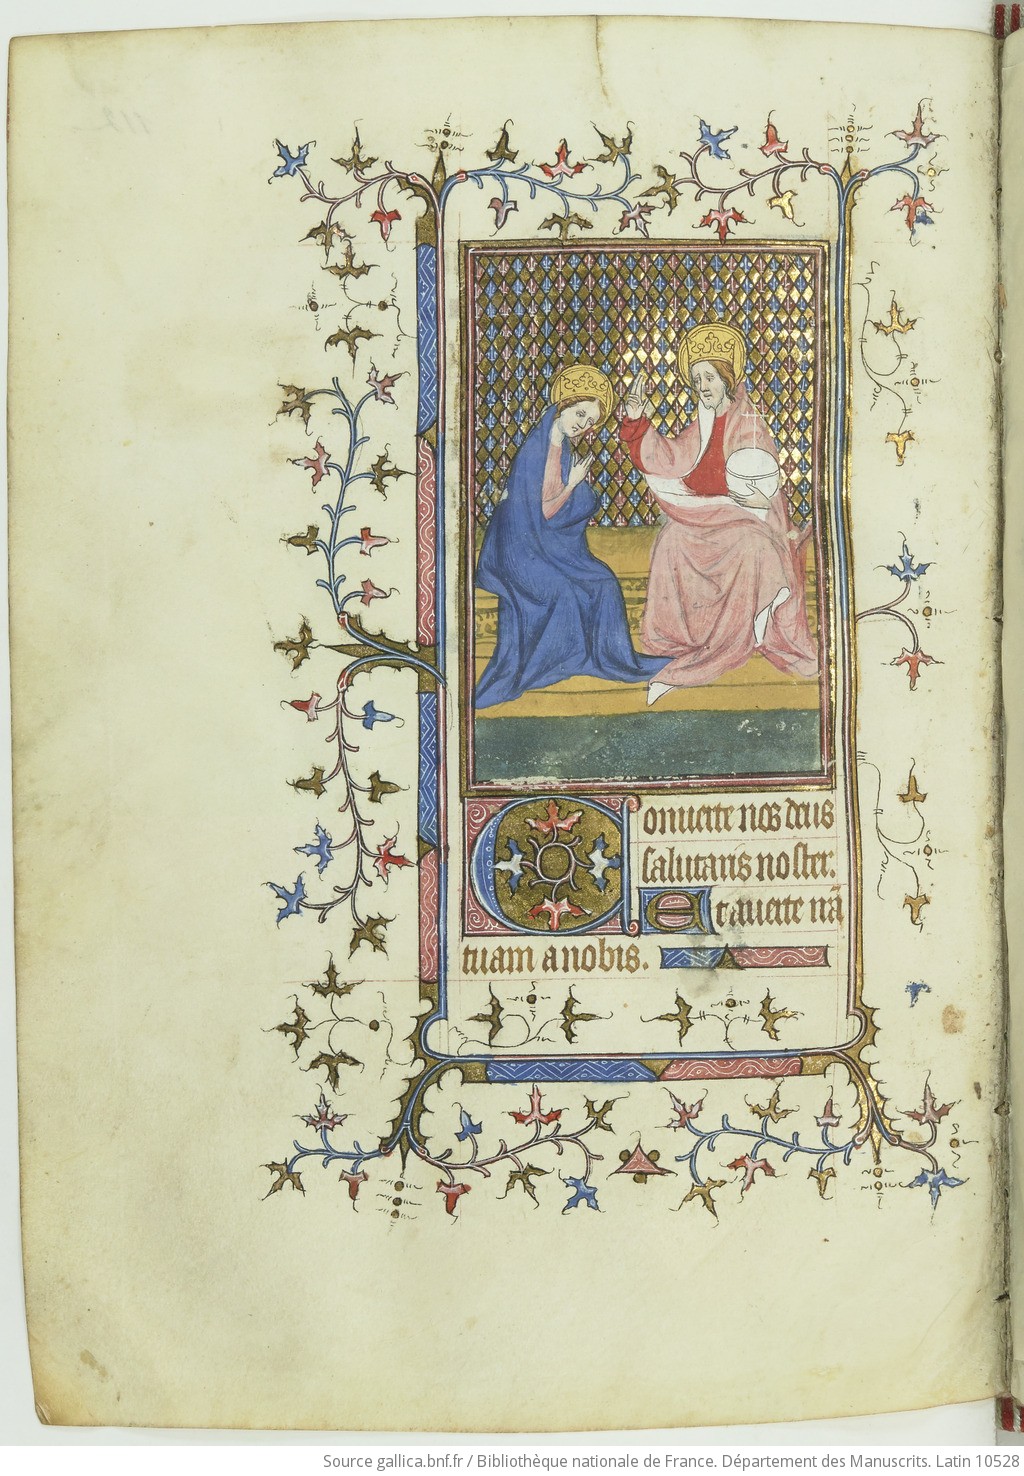 Conuerte nos deus
salutaris noster.
Et auerte irā
tuam a nobis.
Source gallica.bnf.fr / Bibliothèque nationale de France. Département des Manuscrits. Latin 10528